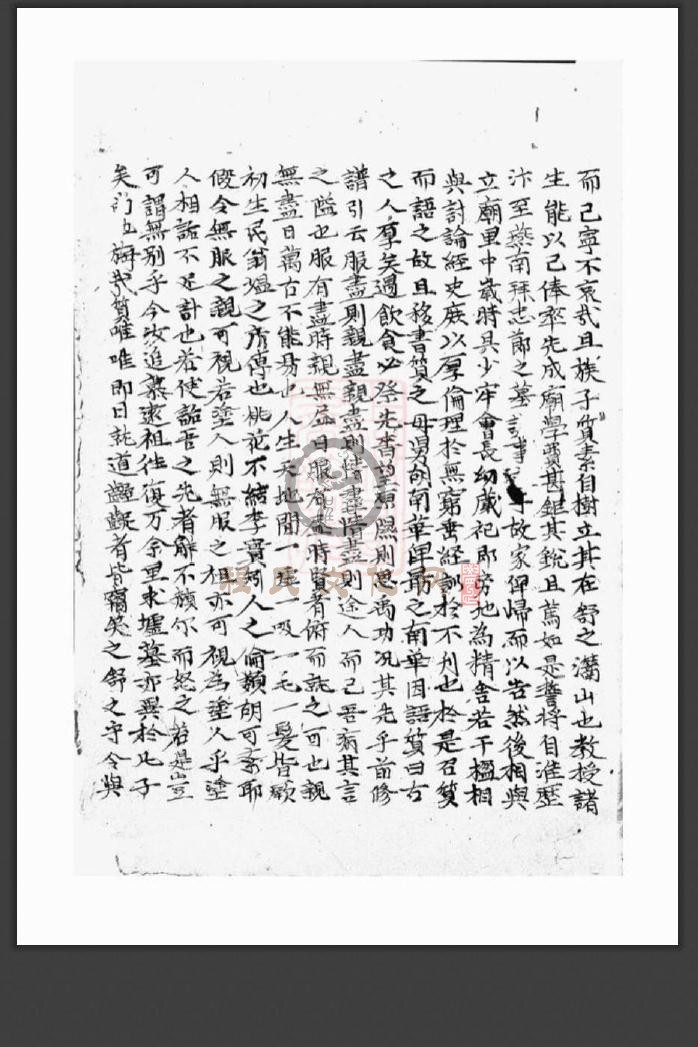 而己寧不哀哉且族子質素自樹立其在舒之灊山也教授諸
生能以己俸率先成廟學實甚鉅其銳且篤如是誓將自淮歷
汴至燕南拜忠節之墓訪事 于故家俾歸而以告然後相與
立廟里中歲時具少牢會長幼歲祀即旁地為精舍若干楹相
與討論經史庶以厚倫理於無窮垂經訓於不刋也於是召質
而語之故且移書質之母舅胡南華俾勗之南華因語質曰古
之人厚矣遇飲食必祭先 則思禹功况其先乎前修
譜引云服盡則親盡親盡則情盡情盡則途人而己吾病其言
之隘也服有盡時親無盡日服有盡時賢者俯而就之可也親
無盡日萬古不能易也人生天地間一噓一吸一毛一髮皆厥
初生民 之所傳也桃 不結李實 人之倫類胡可紊耶
假令無服之親可視若塗人則無服之祖亦可視為塗人乎塗
人相詬不足計也若使詬吾之先者能不頳尓而怒之若是豈
可謂無别乎今汝進慕遠祖往復万余里求墟墓亦異於凡子
矣行也 哉質唯唯即日就道齷齪者皆竊笑之舒之守令與